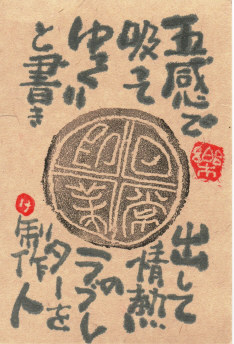 五感で
吸って
ゆっくり
と書き
樂
出して
情熱
の
ラブレ
ターを
制作人
け